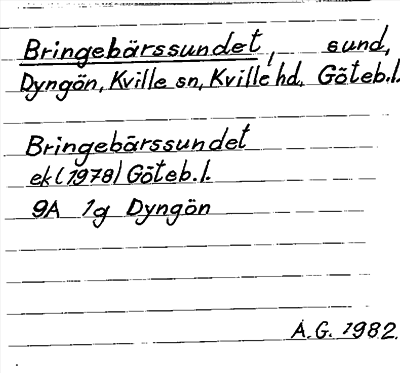 Bringebärssundet, sund,
Dyngön, Kville sn, Kville hd, Göteb.l.
Bringebärssundet
ek (1978) Göteb.l.
9A 1g Dyngön
A.G. 1982.